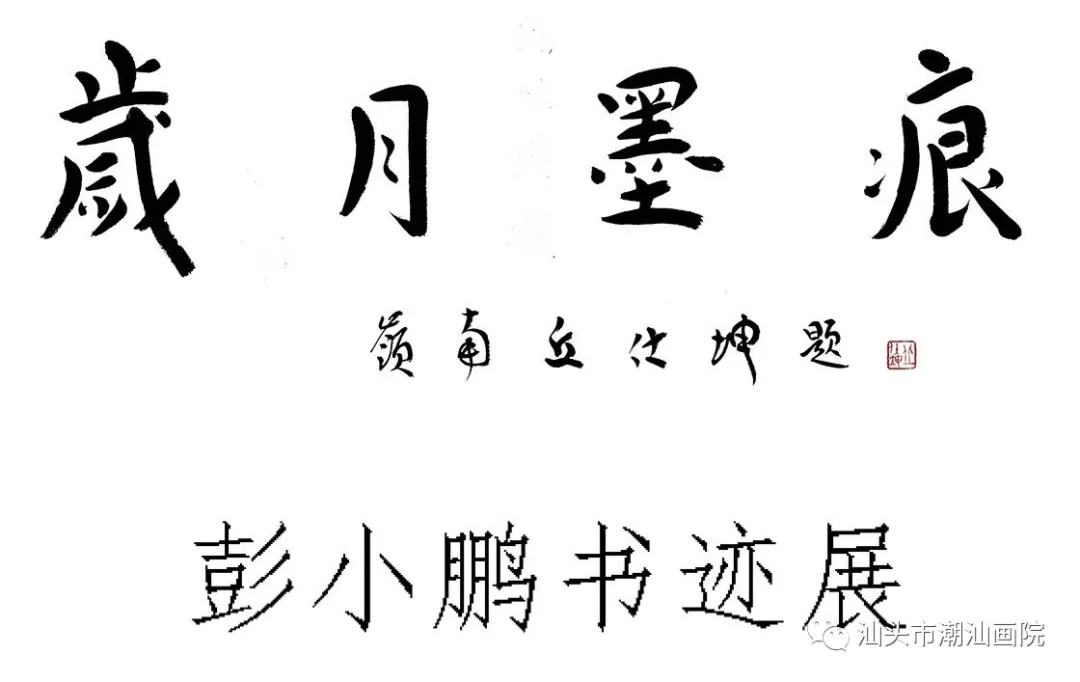 歲月墨痕
嶺南丘仕坤题
彭小鹏书迹展
汕头市潮汕画院